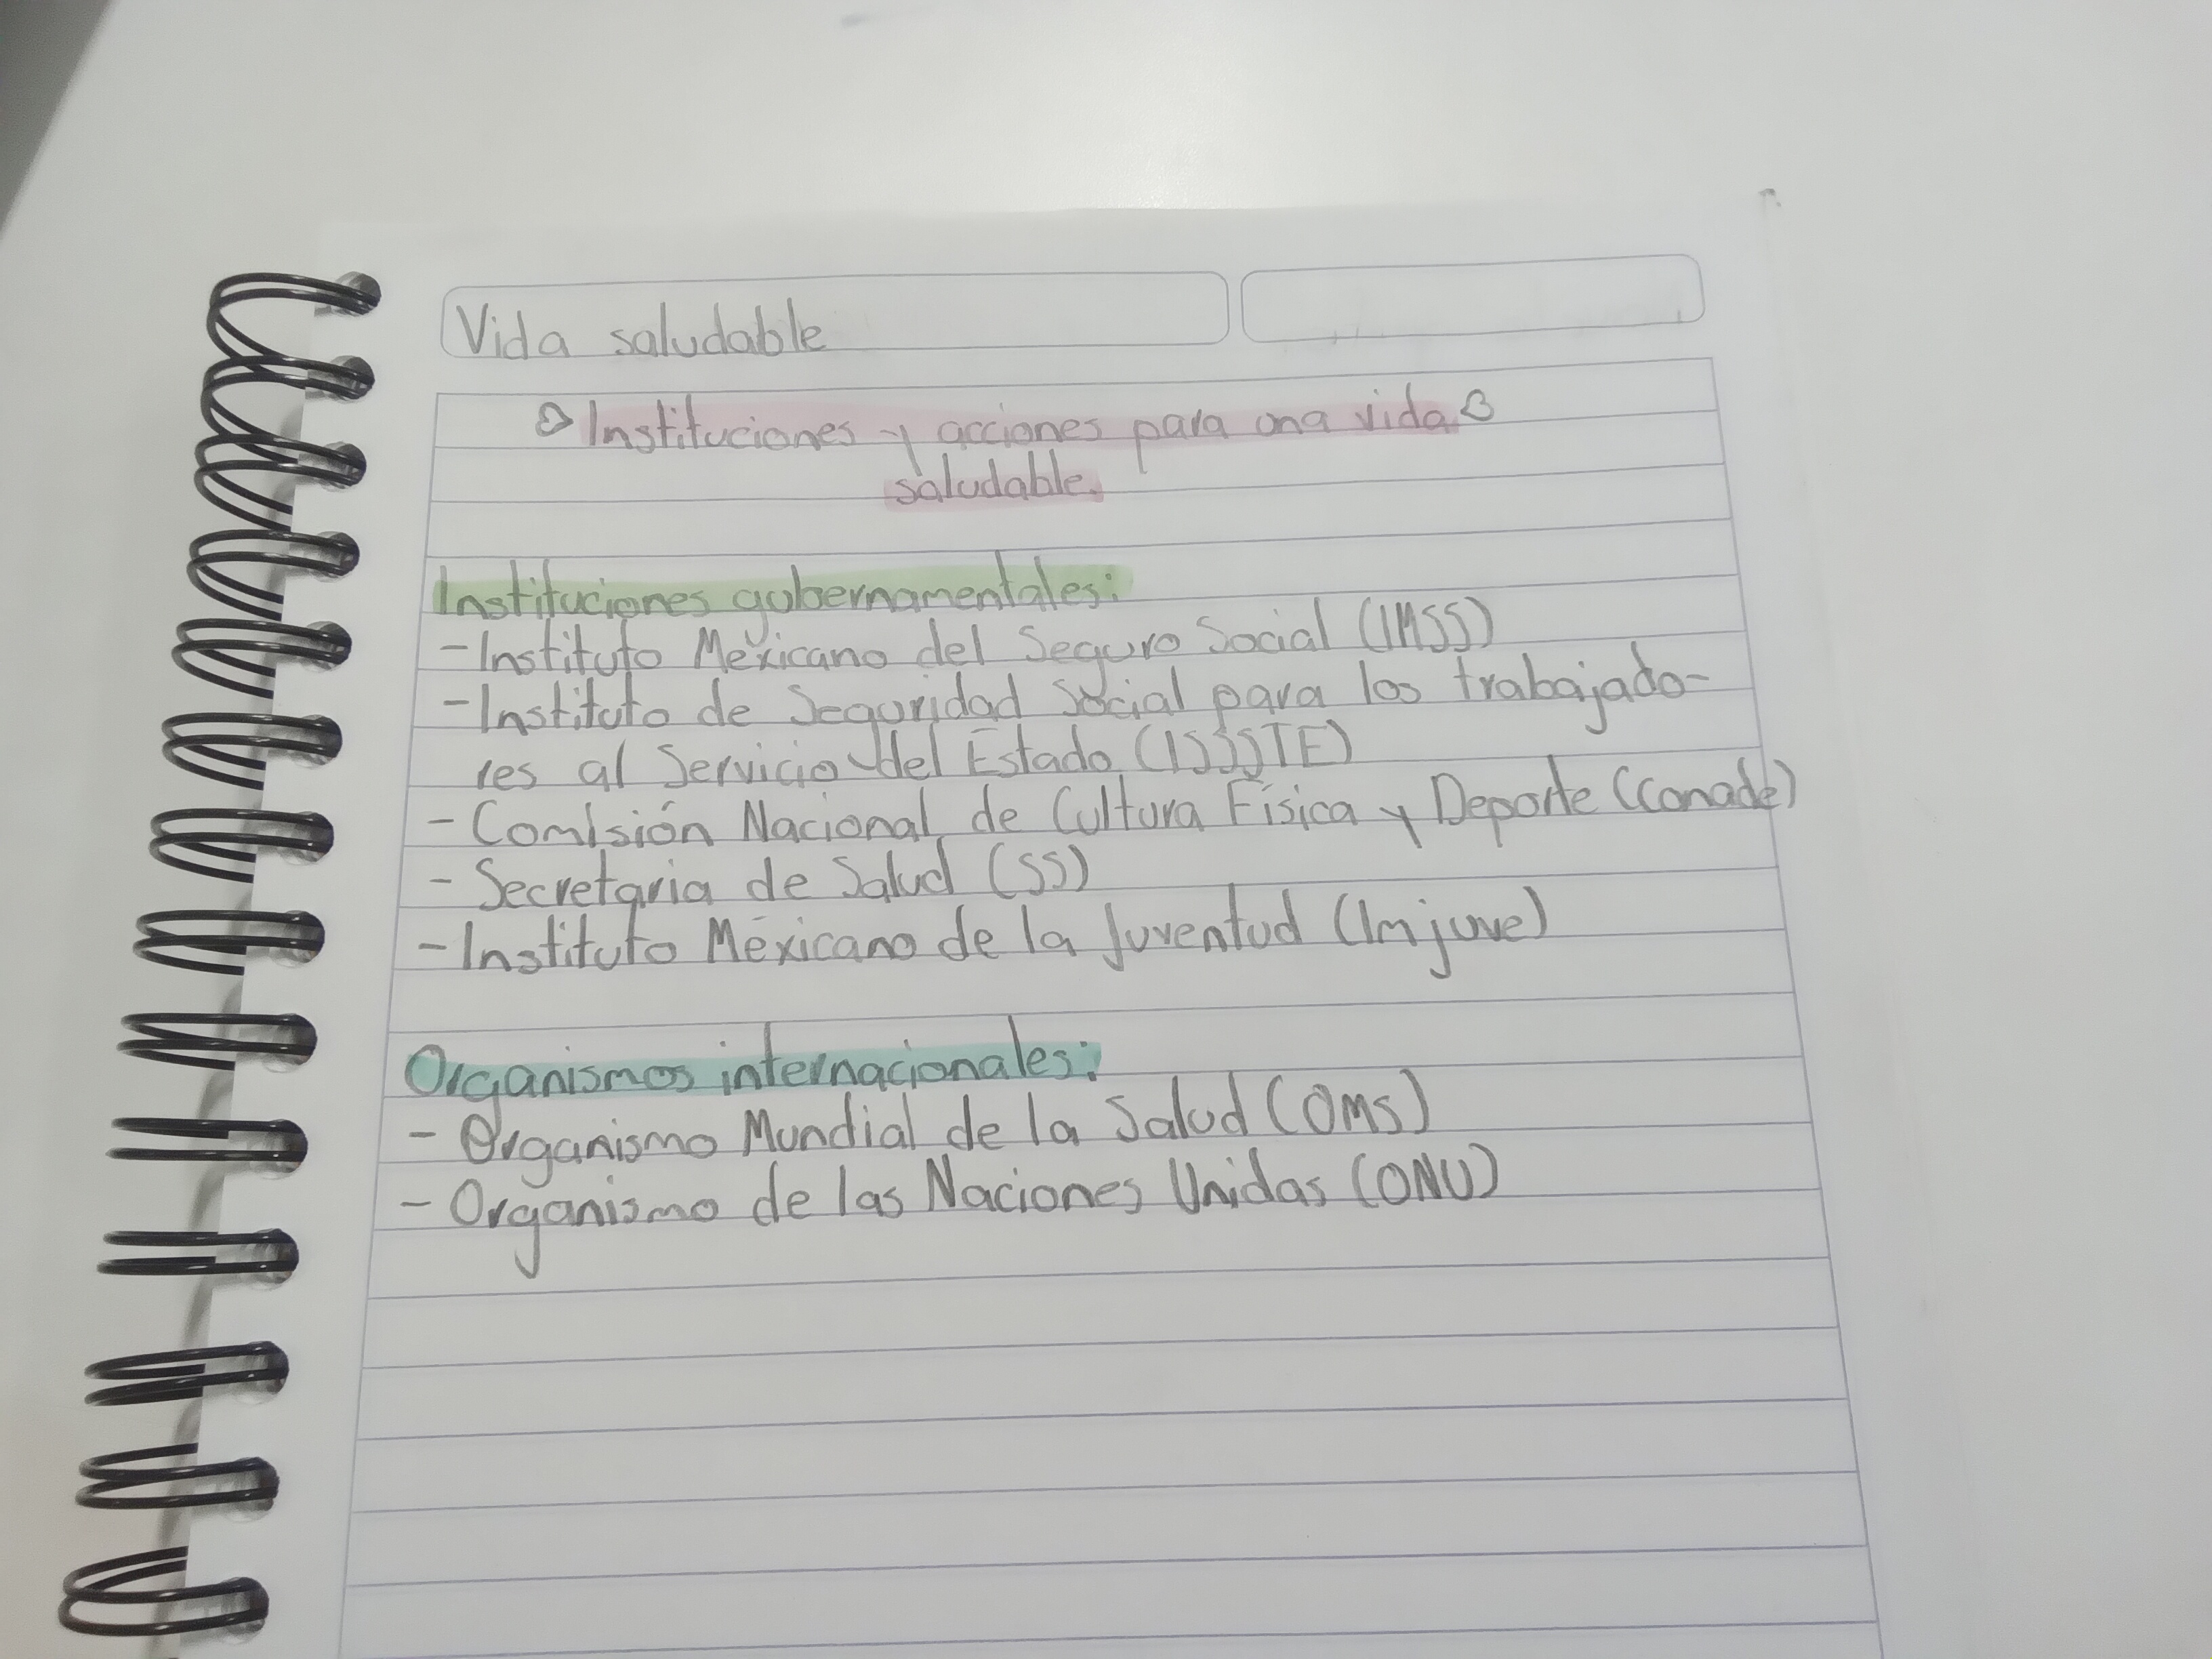 Vida saludable
Instituciones y acciones para una vida
saludable.
Instituciones gubernamentales:
- Instituto Méxicano del Seguro Social (IMSS)
- Instituto de Seguridad Social para los trabajado-
res al Servicio del Estado (ISSSTE)
- Comisión Nacional de Cultura Física y Deporte (Conade)
- Secretaria de Salud (SS)
- Instituto Méxicano de la Juventud (Imjuve)
Organismos internacionales:
- Organismo Mundial de la Salud (OMS)
- Organismo de las Naciones Unidas (ONU)